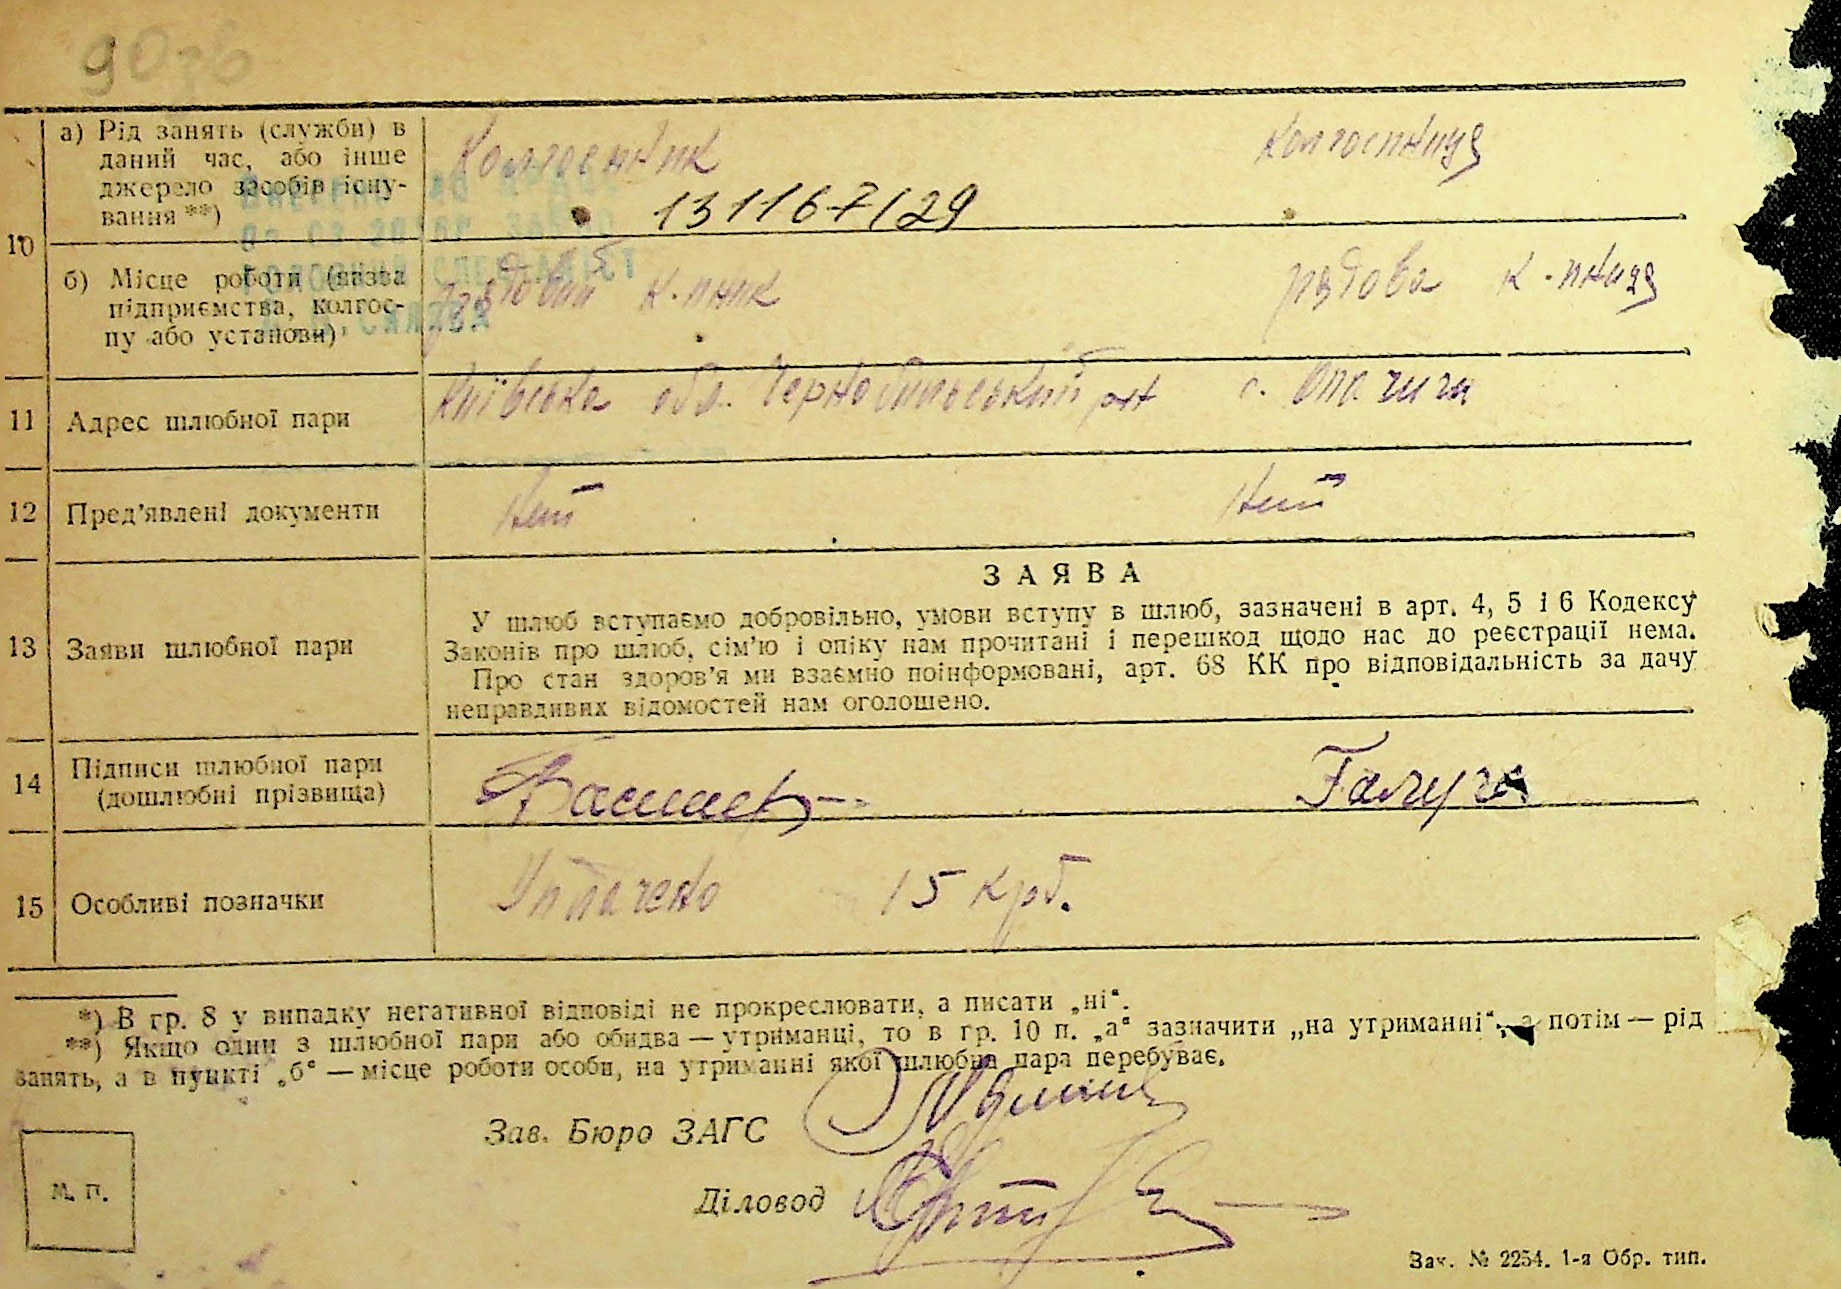 90зв
а) Рід занять (служби) в
даний час, або інше
джерело засобів існу-
вання **)
Колгоспник
Колгоспниця
131167/29
10
б) Місце роботи (назва
підприємства, колгос-
пу або установи)
рядовий к-пник
рядова к-пниця
11 Адрес шлюбної пари
Київська обл. Чернобильський рн с. Опачичи
12 Пред’явлені документи
Нит
Нит
ЗАЯВА
13 Заяви шлюбної пари
У шлюб вступаємо добровільно, умови вступу в шлюб, зазначені в арт. 4, 5 і 6 Кодексу
Законів про шлюб, сім’ю і опіку нам прочитані і перешкод щодо нас до реєстрації нема.
Про стан здоров’я ми взаємно поінформовані, арт. 68 КК про відповідальність за дачу
неправдивих відомостей нам оголошено.
14 Підписи шлюбної пари
(дошлюбні прізвища)
Галуга
15 Особливі позначки
Уплачено 15 крб.
*) В гр. 8 у випадку негативної відповіді не прокреслювати, а писати „ні“.
**) Якщо один з шлюбної пари або обидва — утриманці, то в гр. 10 п. „а“ зазначити „на утриманні“, а потім — рід
занять, а в пункті „б“ — місце роботи особи, на утриманні якої шлюбна пара перебуває.
Зав. Бюро ЗАГС
Діловод
М. П.
Зак. № 2254. 1-а Обр. тип.